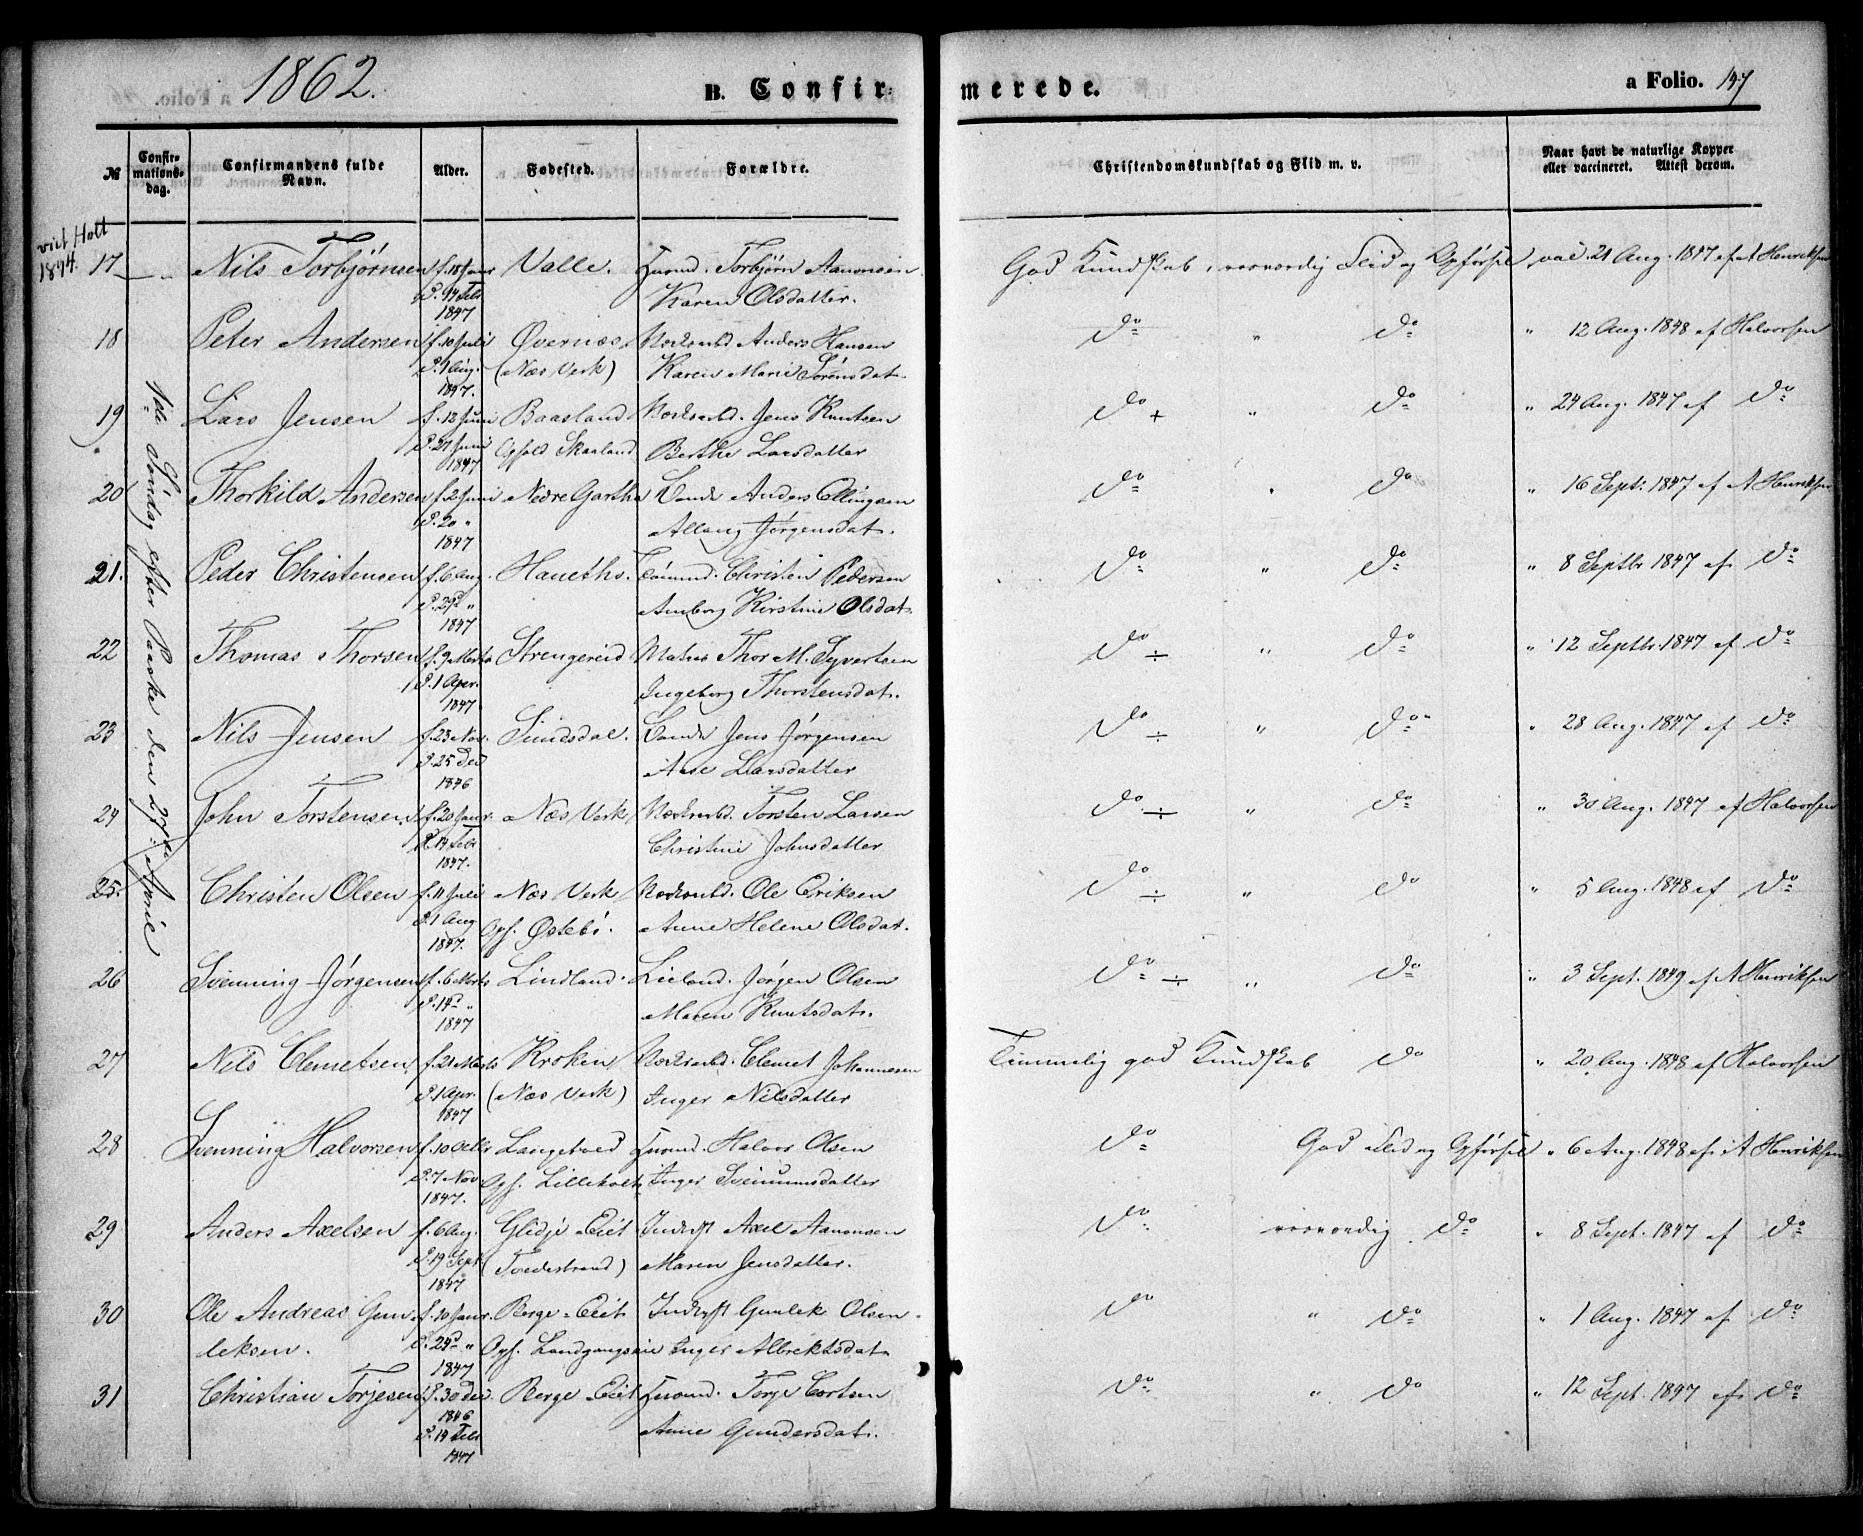 1862.
B. Confirmerede.
a Folio. 147
№
Confirmationsdag.
Confirmandens fulde Navn.
Alder.
Fødested.
Forældre.
Christendomskundskab og Flid m. v.
Naar havt de naturlige Kopper eller vaccineret. Attest derom.
viet Holt
1894.
2de Søndag efter Paaske den 27de April
17 Nils Torbjørnsen f. 18 Janr Valle. Torbjørn Aanonsen God Kundskab, roesværdig Flid og Opførsel, vac. 21 Aug. 1847 af A Henriksen
1847 Karen Olsdatter.
18 Peter Andersen f. 10 Juli Øvernæs, Værksarbd. Anders Hansen do " do " 12 Aug. 1848 af Halvorsen
d. 1 Aug. (Næs Verk) Karen Marie Sørensdat.
1847.
19 Lars Jensen f. 12 Juni Baasland. Værksarbd. Jens Knutsen do + " do " 24 Aug. 1847 af do
d. 27 Juni Opføld Skaaland Berthe Larsdatter
1847
20 Thorkild Andersen f. 2 Juni Nedre Gartha Anders Ellingsen do " do " 16 Sept. 1847 af A Henriksen
d. 20 " Jørgensdat.
1847
21. Peder Christensen f. 6 Aug. Haneths. Christen Pedersen do " do " 8 Septbr 1847 af do
d. 29d " Kirstine Olsdat.
1847
22 Thomas Thorsen f. 9 Marts Strengereid Matros Thor M. Syvertsen do ÷ " do " 12 Septbr. 1847 af do
d. 1 Apr. Ingeborg Thorstensdat.
1847
23 Nils Jensen f. 23 Nov. Sundsdal. Jens Jørgensen do ÷ " do " 28 Aug. 1847 af do
d. 25 Dec Aase Larsdatter
1846
24 John Torstensen, f. 20 Janr. Næs Verk, Værksarbd. Torsten Larsen do ÷ " do " 30 Aug. 1847 af Halvorsen
d. 14 Febr Christine Johnsdatter
1847.
25. Christen Olsen f. 11 Juli Næs Verk Værksarbd. Ole Eriksen do ÷ " do " 5 Aug. 1848 af do
d. 1 Aug Opf. Østebø. Anne Helene Olsdat.
1847.
26 Svenning Jørgensen f. 6 Marts Lindland. Jørgen Olsen do ÷ " do " 3 Sept. 1849 af A Henriksen
d. 14d " Maren Knutsdat.
1847
27 Nils Clemetsen, f. 21 Marts Kroken Værksarbd. Clemet Johannesen Temmelig god Kundskab do " 20 Aug. 1848 af Halvorsen
d. 1 Apr. (Næs Verk) Inger Nilsdatter
1847
28 Svenning Halvorsen f. 10 Octbr Langetved Halvor Olsen do God Flid og Opførsel " 6 Aug. 1848 af A Henriksen
d. 7 Nov Opf. Lilleholt Inger
1847.
29 Anders Axelsen f. 6 Aug. Glidje Eiet Inderst Axel Aanonsen do roesværdig do " 8 Sept. 1847 af do
d. 19 Sept (Tvedestrand) Maren Jensdatter.
1847
30 Ole Andreas Gun f. 10 Janr. Berge-Eiet Inderst Gunlek Olsen do " do " 1 Aug. 1847 af do
leksen. d. 24d " Opf. Inger Albrektsdat.
1847
31 Christian Torjesen f. 30 Dec. Berge Eiet Torje do " do " 12 Sept. 1847 af do
1846 Anne Gundersdat.
d. 14 Febr
1847